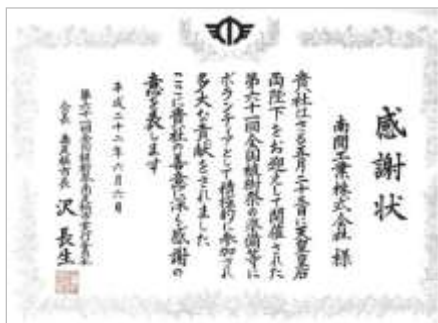 感謝状
工業株式会社 様
貴社はさる五月二十三日に天皇皇后
両陛下をお迎えして開催された
第六十一回全国植樹祭の準備等に
ボランティアとして積極的に参加され
多大な貢献をされました
ここに貴社の善意に深く感謝の
意を表します
平成二十二年六月六日
第六十一回全国植樹祭南足柄市実行委員会
会長 南足柄市長 沢 長生